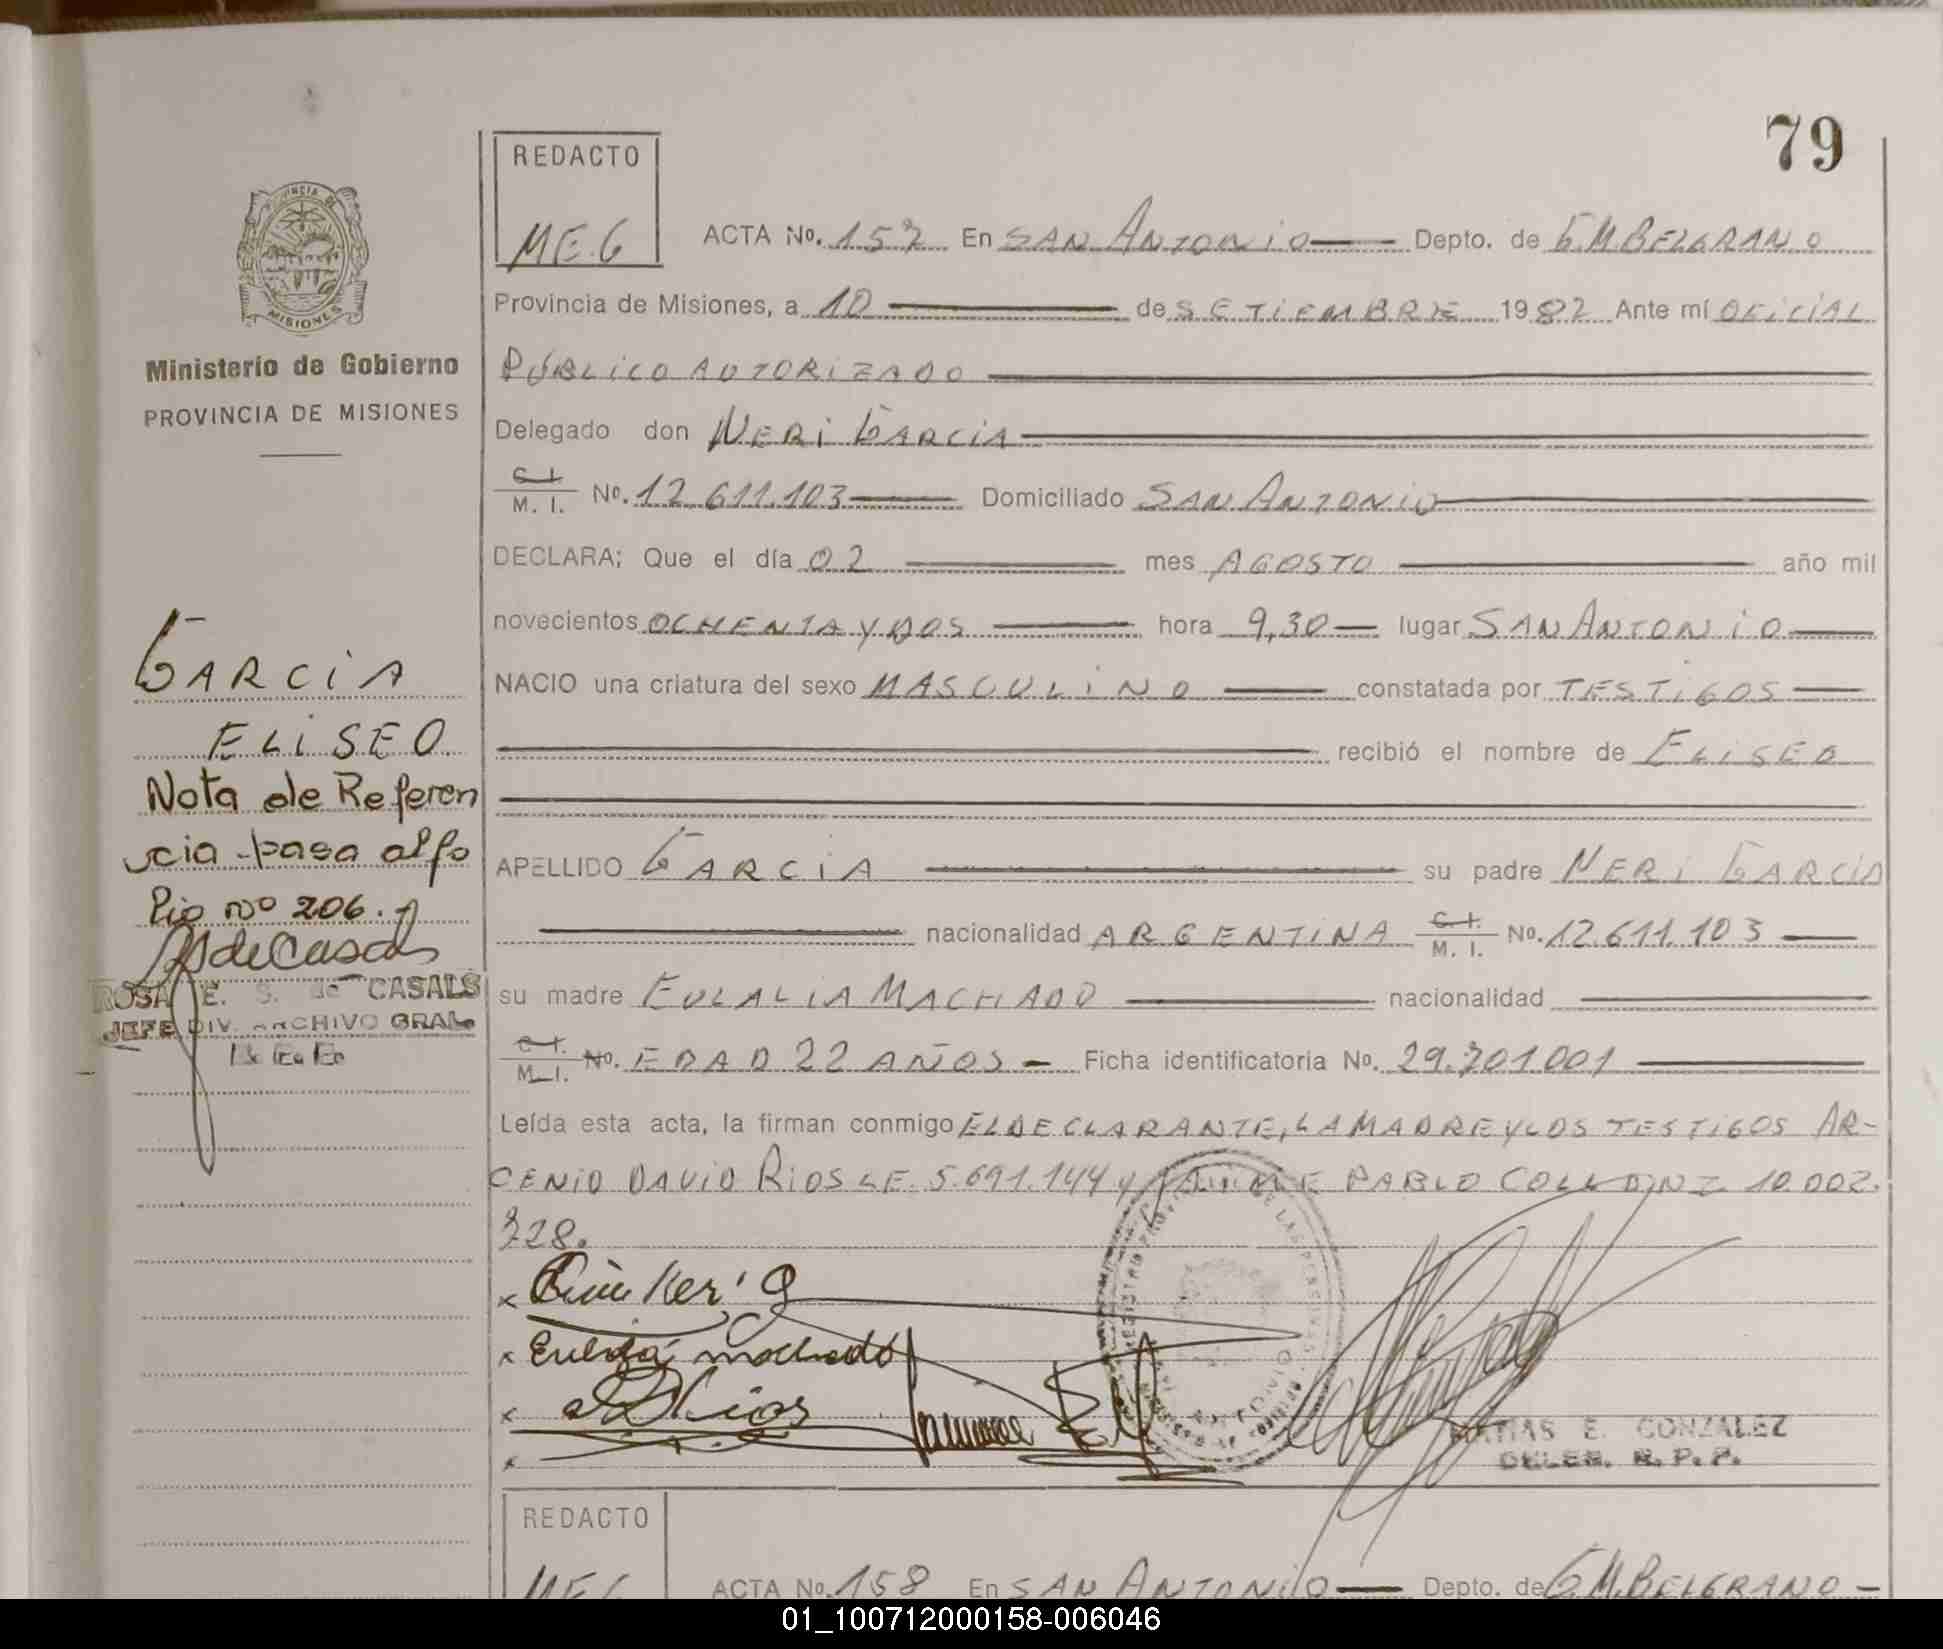 79
REDACTO
ME.G
ACTA No. 157 En SAN ANTONIO Depto. de G.M.BELGRANO
Provincia de Misiones, a 10 de SETIEMBRE 1982 Ante mí OFICIAL
PÚBLICO AUTORIZADO
Delegado don NERI GARCIA
C. I.
M. I. No. 12.611.103 Domiciliado SAN ANTONIO
DECLARA; Que el día 02 mes AGOSTO año mil
novecientos OCHENTA Y DOS hora 9,30 lugar SAN ANTONIO
NACIO una criatura del sexo MASCULINO constatada por TESTIGOS
recibió el nombre de ELISEO
APELLIDO GARCIA su padre NERI GARCIA
nacionalidad ARGENTINA C. I. M. I. No. 12.611.103
su madre EULALIA MACHADO nacionalidad
C. I.
M. I. No. EDAD 22 AÑOS Ficha identificatoria No. 29.701.001
Leída esta acta, la firman conmigo EL DECLARANTE, LA MADRE Y LOS TESTIGOS AR-
CENIO DAVID RIOS L.E. 5.691.144 y JAIME PABLO 10.002.
728.
x Neri G
x Eulalia machado
x Rios
x
MATIAS E. GONZALEZ
DELEG. R. P. P.
PROVINCIA DE
MISIONES
Ministerio de Gobierno
PROVINCIA DE MISIONES
GARCIA
ELISEO
Nota de Referen
cia pasa al fo
lio nº 206.
ROSA E. S. de CASALS
JEFE DIV. ARCHIVO GRAL.
REDACTO
ME.G
ACTA No. 158 En SAN ANTONIO Depto. de G.M.BELGRANO
01_100712000158-006046